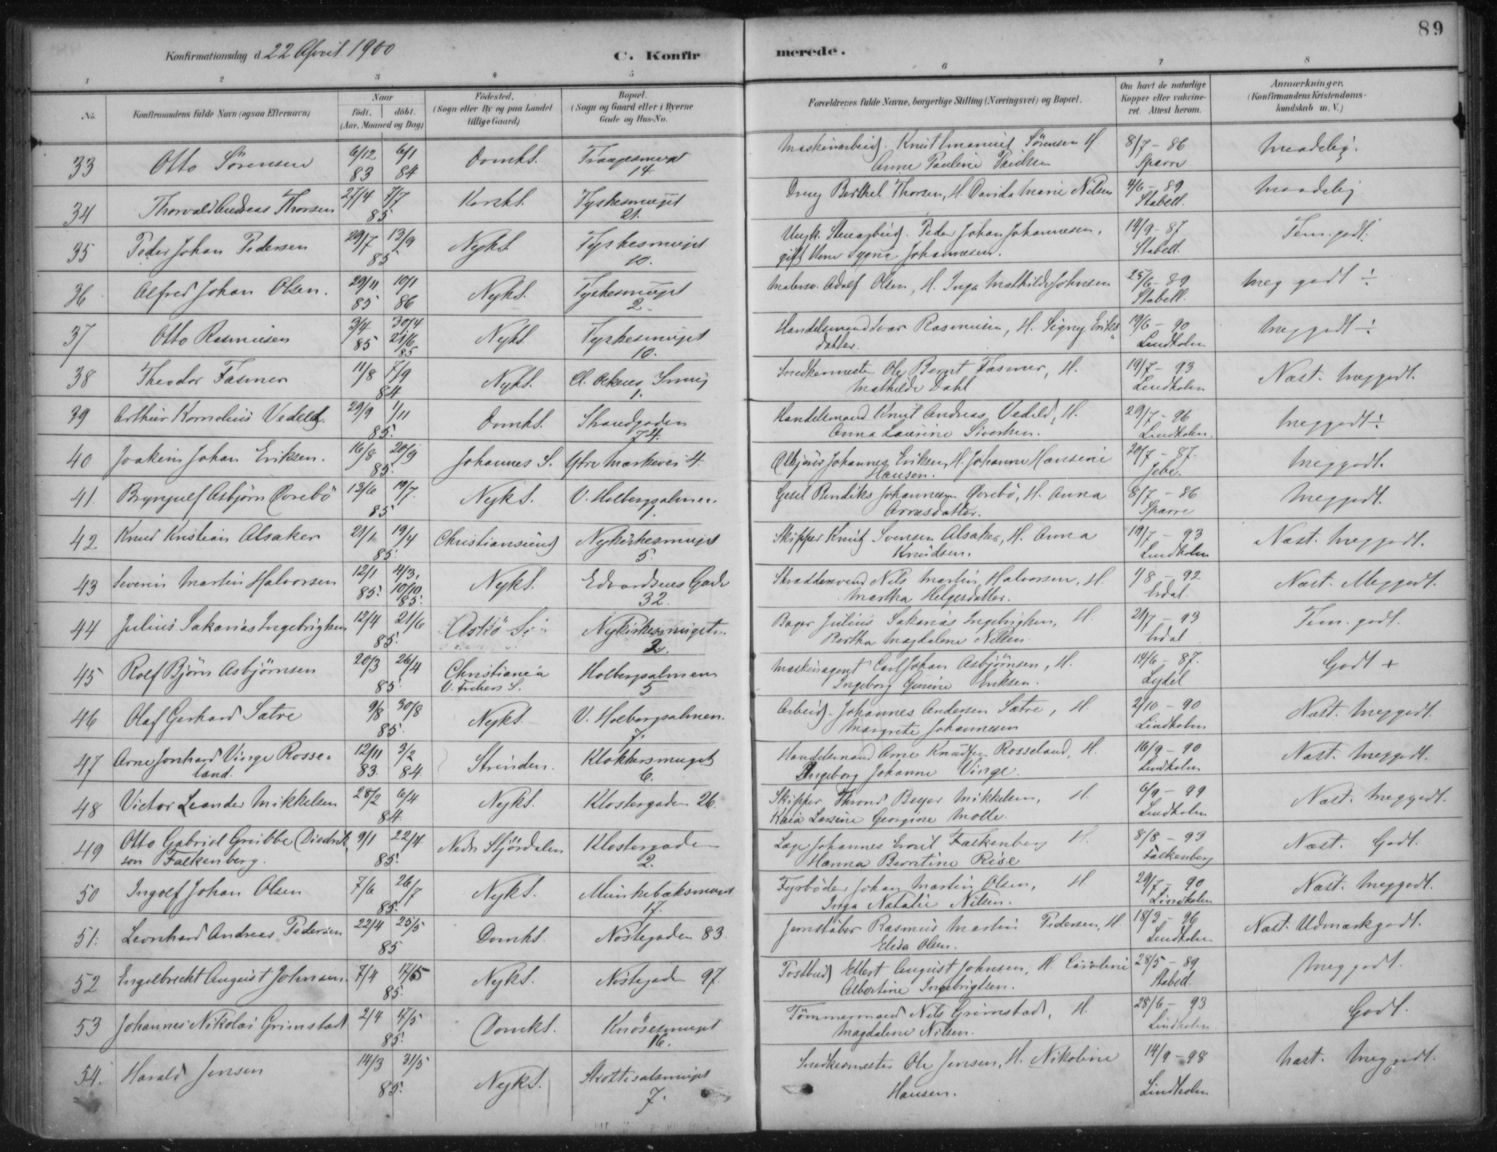 89
Konfirmationsdag d. 22 April 1900
C. Konfirmerede.
1 2 3 4 5 6 7 8
No.
Konfirmandens fulde Navn (ogsaa Efternavn)
Naar
født. døbt.
(Aar, Maaned og Dag)
Fødested.
(Sogn eller By og paa Landet tillige Gaard)
Bopæl.
(Sogn og Gaard eller i Byerne Gade og Hus-No.
Forældrenes fulde Navne, borgerlige Stilling (Næringsvei) og Bopæl.
Om havt de naturlige Kopper eller vaccineret. Attest herom.
Anmærkninger.
(Konfirmandens Kristendomskundskab m. V.)
33 Otto Sörensen 6/12 83 6/1 84 Domk. 14 Sörensen Anne Pauline 8/7 - 86 Sparre maadelig.
34 Thorvald Andreas Thorsen 27/4 7/7 85 Korsk. 21. Thorsen, H. Marie Nilsen 4/6 - 89 Stabell. maadelig
35 Peder Johan Pedersen 29/7 13/9 85 Nykk. 10. Peder Johan Johannesen, Johannesen. 14/9 - 87 Stabell. Tem. godt.
36 Alfred Johan Olsen. 29/11 85 10/1 86 Nykk. 2. Adolf Olsen, H. Inga Mathilde Johnsen 25/6 - 89 Stabell. Meg godt ÷
37 Otto Rasmussen 3/4 85 30/4 21/6 85 Nykk. 10. Handelsmand Ivar Rasmussen, H. Signy Eriksdatter. 19/6 - 90 Lindholm Meg godt ÷
38 Theodor Fasmer 11/8 7/9 84 Nykk. 1. Snedkermester Ole Berent Fasmer, H. Mathilde Dahl 19/7 - 93 Lindholm Næst. meg godt.
39 Arthur Kornelius Vedeld 29/9 1/11 85. Domk. Strandgaden 74. Handelsmand Knut Andreas Vedeld, H. Anna Laurine Sivertsen. 29/7 - 96 Lindholm. meg godt ÷
40 Joakim Johan Eriksen. 16/8 20/9 85. Johannes S. Ytre Markevei 4. Johannes Eriksen, H. Johanne Hansine Hansen. 20/7 - 87. Jebe. meg godt.
41 Brynjulf Asbjörn Övrebö 13/6 19/7 85 Nykk. V. Holbergsalmen. 1. Gesel Bendiks Johannesen Övrebö, H. Anna 8/7 - 86 Sparre meg godt.
42 Knud Kristian Alsaker 19/4 85 Christiansund Nykirkesmuget 5 Skipper Knut Svensen Alsaker, H. Anna Knudsen. 19/7 - 93 Lindholm Næst. meg godt.
43 Severin Martin Halvorsen 12/1 85. 4/3. 10/10 85. Nykk. Edvardsens Gade 32. Nils Martin Halvorsen, H. Martha Helgesdatter. 4/8 - 92 Næst. Meg godt.
44 Julius Sakarias Ingebrigtsen 12/4 21/6 85 Askö S. Nykirkesmuget. 2. Bager Julius Sakarias Ingebrigtsen, H. Bertha Magdalene Nilsen 21/7 - 93 Tem. godt.
45 Rolf Björn Asbjörnsen 20/3 26/4 85. Christiania V. Frelsers S. Holbergsalmen 5 Maskinagent Carl Johan Asbjörnsen, H. Ingeborg Gurine Eriksen. 14/6 - 87. Godt +
46 Olaf Gerhard Sætre 9/8 30/8 85. Nykk. V. Holbergsalmen. 7. Arbeid. Johannes Andersen Sætre, H. Margrete Johannesen 2/10 - 90 Lindholm Næst. meg godt.
47 Arne Jonhard Vinge Rosseland. 12/11 83 3/2 84 Strinden. Klokkersmuget 6. Handelsmand Arne Knudsen Rosseland, H. Ingeborg Johanne Vinge. 16/9 - 90 Lindholm Næst. meg godt.
48 Victor Leander Mikkelsen 28/2 6/4 84 Nykk. Klostergaden 26. Skipper Thrond Beyer Mikkelsen, H. Kaia Larsine Georgine Motte. 6/9 - 99 Lindholm Næst. meg godt.
49 Otto Gabriel Gribbe Falkenberg. 9/1 22/4 85. Nedre Stjördalen Klostergaden 2. Læge Johannes Falkenberg H. Hanna Berntine Riise 8/8 - 93 Falkenberg Næst. Godt.
50 Ingolf Johan Olsen 7/6 26/7 85. Nykk. Munkebæksmuget 17. Fyrböder Johan Martin Olsen, H Inga Natalie Nilsen. 29/7 - 90 Lindholm Næst. meg godt.
51. Leonhard Andreas Pedersen 22/4 25/5 85 Domk. Nöstegaden 83. Rasmus Martin Pedersen, H Elisa Olsen. 18/3 - 96 Lindholm Næst. Udmærk godt.
52 Engelbrecht August Johnsen. 7/4 17/5 85. Nykk. Nöstegad 97. Postbud Ellert August Johnsen, H. Caroline Albertine Ingebrigtsen. 28/5 - 89 Stabell Meg godt.
53 Johannes Nikolai Grimstad 2/4 17/5 85. Domk. Knösesmuget 16. Tömmermand Nils Grimstad, H. Magdalene Nilsen. 28/6 - 93 Lindholm Godt.
54. Harald Jensen 14/3 31/5 85. Nykk. Skottesalsmuget 7. Snedkermester Ole Jensen, H. Nikoline Hansen. 14/9 - 98 Lindholm Næst. Meg godt.